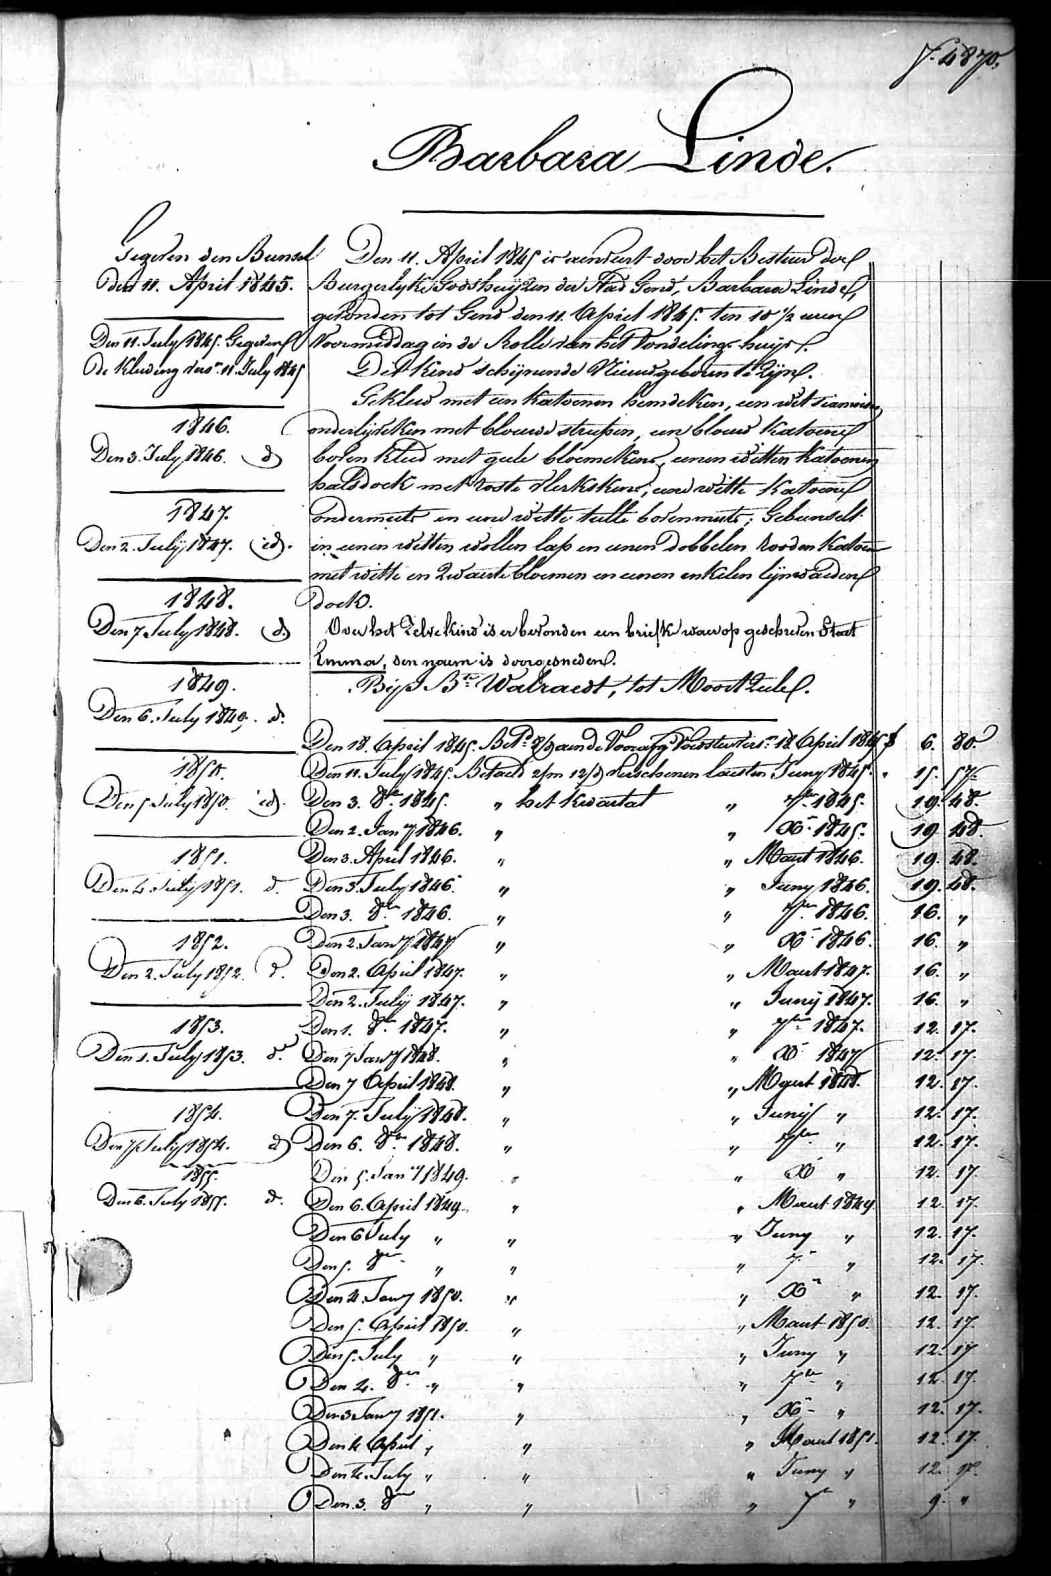 f. 4870.
Barbara Linde.
Gegeven den Bunsel
den 11. April 1845.
Den 11. July 1845. Gegeven
de Kleeding vers.n 11 July 1845
1846.
Den 3. July 1846. id
1847.
Den 2. July 1847. id.
1848.
Den 7 July 1848. id
1849.
Den 6. July 1849. id.
1850.
Den 5 July 1850. id.
1851.
Den 4 July 1851. id.
1852.
Den 2. July 1852. id.
1853.
Den 1. July 1853. id.
1854.
Den 7 July 1854. id
1855.
Den 6. July 1855. id.
Den 11. April 1845 is aenveert door het Bestuer der
Burgerlyke Godshuyzen der Stad Gend, Barbara Linde,
gevonden tot Gend den 11. April 1845. ten 10 1/2 uren
Voormiddag in de Rolle van het Vondelingshuys.
Dit kind schynende Nieuwgeboren te Zyn.
Gekleed met een katoenen hemdeken, een wit
onderlyfken met blauwe streepen, een blauw Katoene
boven kleed met geele bloemekens, eenen witten katoenen
halsdoek met roste vlekskens, eene witte katoene
ondermuts en eene witte tulle bovenmuts; Gebunselt
in eenen witten wollen lap en eenen dobbelen rooden katoen
met witte en zwarte bloemen en eenen enkelen lynwaeden
doek.
Over het zelve kind is er bevonden een briefk waer op geschreven staet
Emma, den naem is doorgesneden.
Byt B.te Walraedt, tot Moortzeele.
Den 18. April 1845. Bet.d aende Voorzorg Voedster vers.n 18 April 1845 f 6. 80.
Den 11. July 1845. Betaeld 2/m 12/d verschenen laesten Juny 1845. " 15. 57.
Den 3. 8.bre 1845. " het kwartal " 7.bre 1845. 19. 48.
Den 2. Jany 1846. " " X.bre 1845. 19 48.
Den 3. April 1846. " " Maert 1846. 19. 48.
Den 3. July 1846. " " Juny 1846. 19. 48.
Den 3. 8.bre 1846. " " 7.bre 1846. 16. "
Den 2. Jany 1847 " " X.bre 1846. 16. "
Den 2. April 1847. " " Maert 1847. 16. "
Den 2. July 1847. " " Juny 1847. 16. "
Den 1. 8.bre 1847. " " 7.bre 1847. 12. 17.
Den 7 Jany 1848. " " X.bre 1847 12. 17.
Den 7 April 1848. " " Maert 1848. 12. 17.
Den 7. July 1848. " " Juny " 12. 17.
Den 6. 8.bre 1848. " " 7.bre " 12. 17.
Den 5. Jany 1849. " " X.bre " 12. 17.
Den 6. April 1849. " " Maert 1849 12. 17.
Den 6 July " " " Juny " 12. 17.
Den 5. 8.bre " " " 7.bre " 12. 17.
Den 4. Jany 1850. " " X.bre " 12. 17.
Den 5. April 1850. " " Maert 1850. 12. 17.
Den 5. July " " " Juny " 12. 17
Den 4. 8.bre " " " 7.bre " 12. 17.
Den 3 Jany 1851. " " X.bre " 12. 17.
Den 4 April " " " Maert 1851. 12. 17.
Den 4. July " " " Juny " 12. 17.
Den 3. 8.bre " " " 7.bre " 9. "